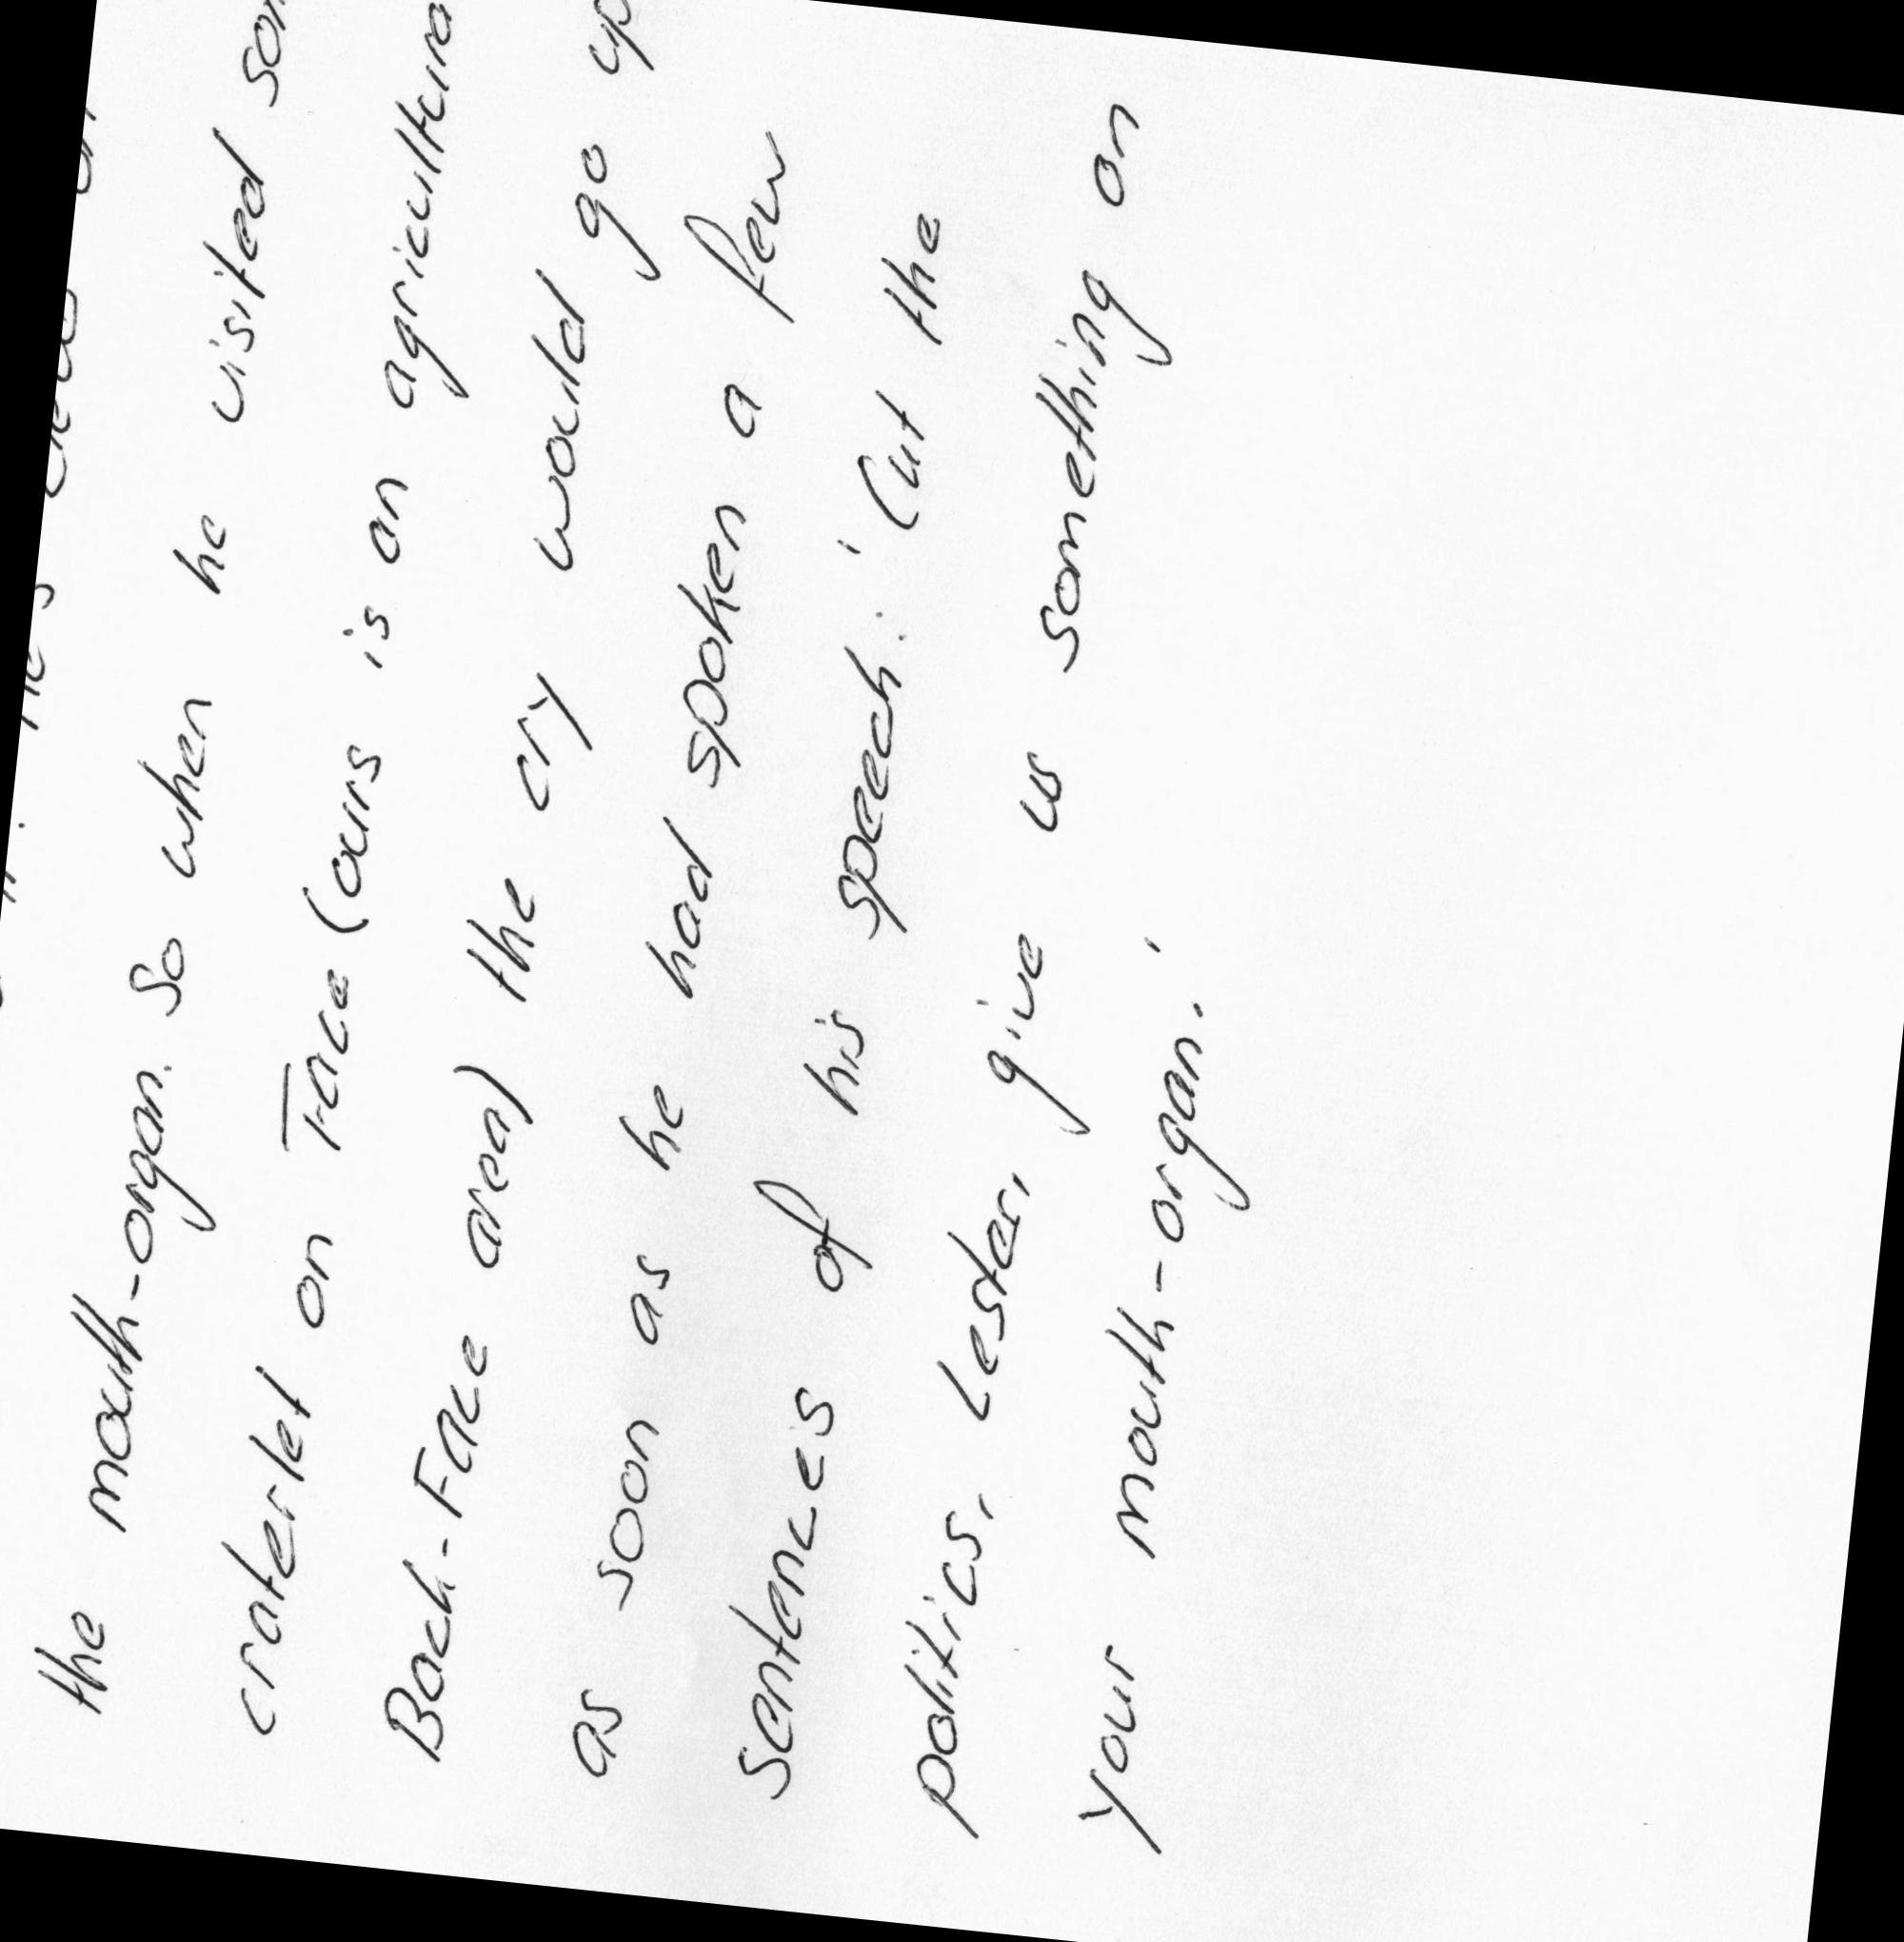 the mouth-organ. So when he visited
craterlet on Face (ours is an
Back-Face area) the cry would go up
as soon as he had spoken a few
sentences of his speech: 'Cut the
politics, Lester, give us something on
your mouth-organ.'